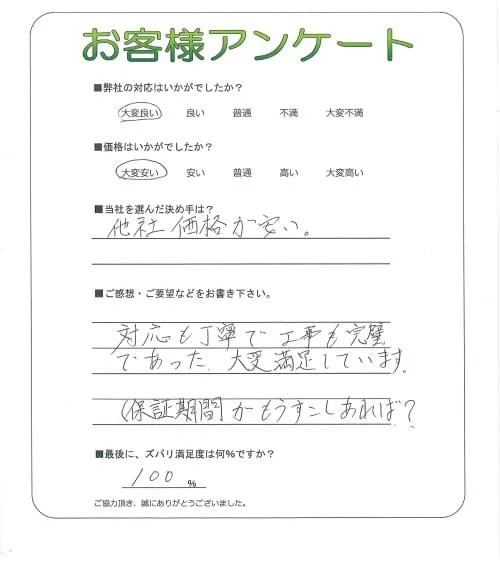 お客様アンケート
■弊社の対応はいかがでしたか？
大変良い 良い 普通 不満 大変不満
■価格はいかがでしたか？
大変安い 安い 普通 高い 大変高い
■当社を選んだ決め手は？
他社 価格が安い。
■ご感想・ご要望などをお書き下さい。
対応も丁寧で工事も完璧
であった。大変満足しています。
（保証期間がもうすこしあれば？
■最後に、ズバリ満足度は何％ですか？
100 ％
ご協力頂き、誠にありがとうございました。